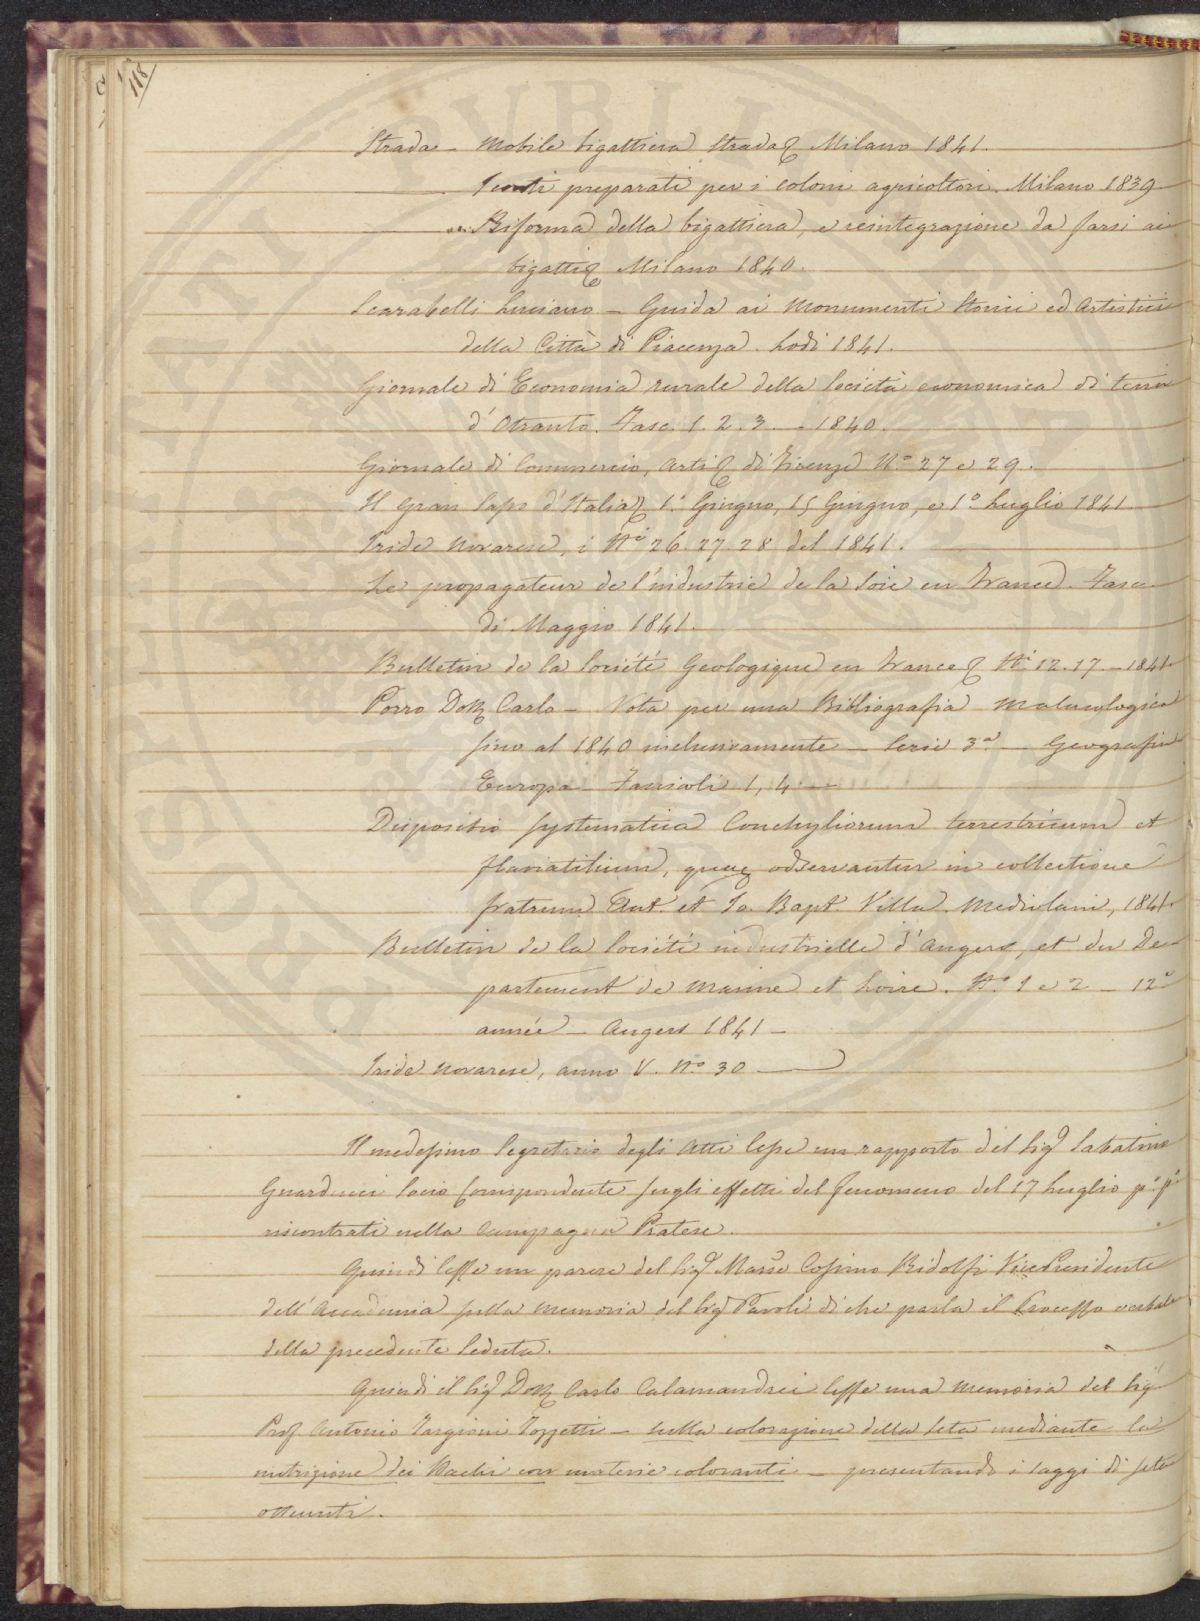 118
Strada - Mobile bigattiera Strada &c Milano 1841.
preparati per i coloni agricoltori. Milano 1839
Riforma della bigattiera, e reintegrazione da farsi ai
bigatti &c Milano 1840.
Scarabelli Luciano - Guida ai Monumenti Storici ed Artistici
della Città di Piacenza. Lodi 1841.
Giornale di Economia rurale della Società economica di terra
d'Otranto. Fasc. 1. 2. 3. - 1840.
Giornale di Commercio, Arti &c di Firenze N.° 27 e 29.
Il Gran Sasso d'Italia &c 1.° Giugno, 15 Giugno, e 1.° Luglio 1841
Iride Novarese, i N.i 26. 27. 28 del 1841.
Le propagateur de l'industrie de la Soie en France. Fasc.
di Maggio 1841.
Bulletin de la Societé Geologique en France &c N.i 12. 17. - 1841.
Porro Dott. Carlo - Nota per una Bibliografia Malacologica
fino al 1840 inclusivamente - Serie 3.a - Geografia
Europa - Fascicoli 1, 4 -
Dispositio systematica Conchyliorum terrestrium et
fluviatilium, quae adservantur in collectione
fratrum Ant. et Jo. Bapt. Villa. Mediolani, 1841.
Bulletin de la Societé industrielle d'Angers, et du De-
partement de Maine et Loire. N.i 1 e 2 - 12.e
année - Angers 1841 -
Iride Novarese, anno V. N.° 30 -
Il medesimo Segretario degli Atti lesse un rapporto del Sig.r Sabatino
Guarducci Socio Corrispondente sugli effetti del fenomeno del 17 Luglio p.° p.°
riscontrati nella Campagna Pratese.
Quindi lesse un parere del Sig.r March.e Cosimo Ridolfi VicePresidente
dell'Accademia sulla memoria del Sig.r Pavoli di che parla il Processo verbale
della precedente Seduta.
Quindi il Sig.r Dott. Carlo Calamandrei lesse una memoria del Sig.r
Prof. Antonio Targioni Tozzetti - sulla colorazione della Seta mediante la
nutrizione dei Bachi con materie coloranti - presentando i saggi di seta
ottenuti.